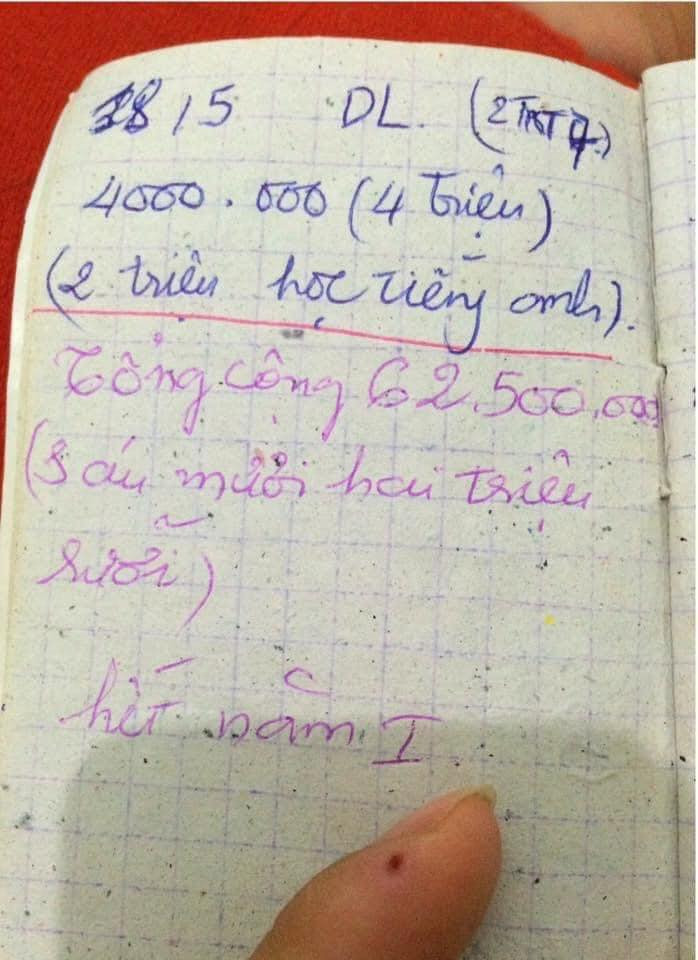 18/5 DL. (2
4000.000 (4 triệu)
(2 triệu học tiếng anh).
Tổng cộng 62.500.000
(sáu mươi hai triệu
rưỡi)
hết năm I